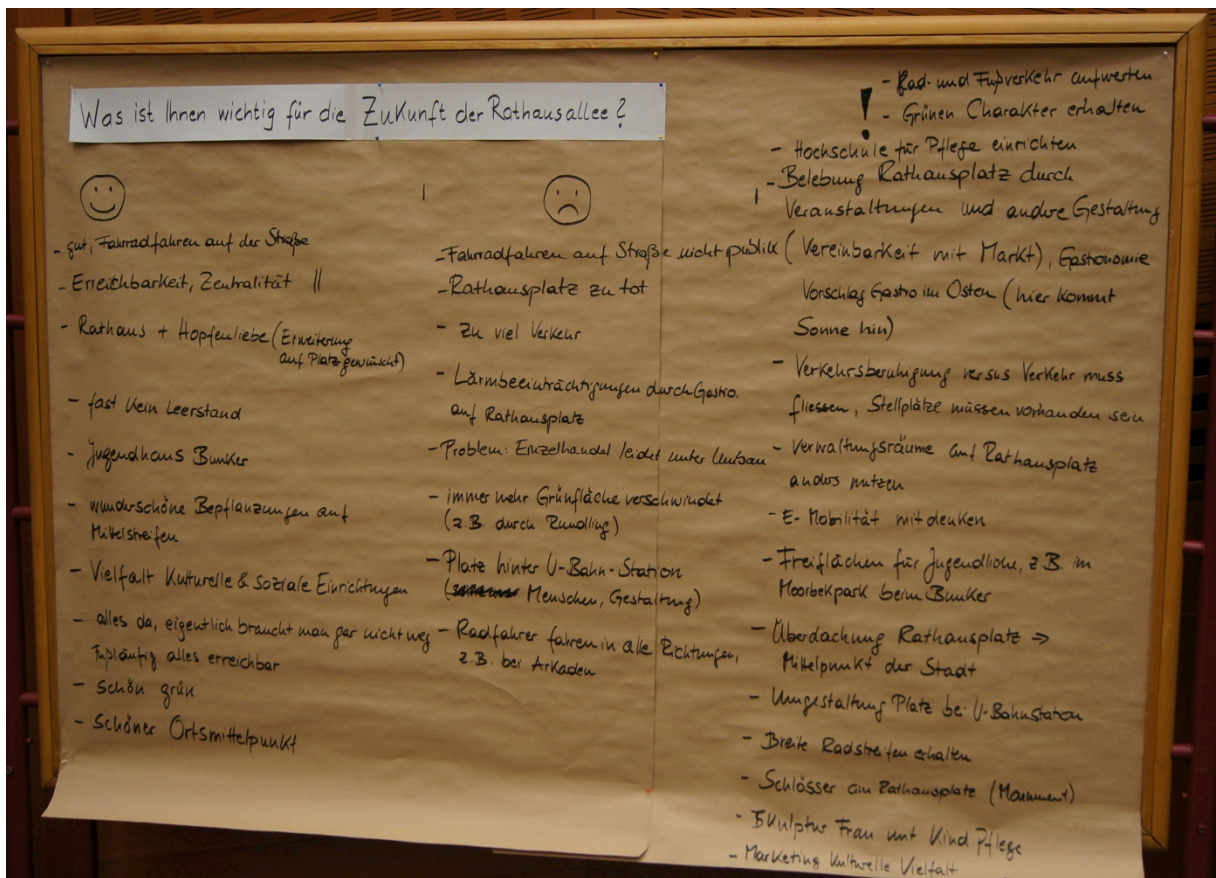 Was ist Ihnen wichtig für die Zukunft der Rathausallee?
- gut, Fahrradfahren auf der Straße
- Erreichbarkeit, Zentralität ||
- Rathaus + Hopfenliebe (Erweiterung
auf Platz gewünscht)
- fast kein Leerstand
- Jugendhaus Bunker
- wunderschöne Bepflanzungen auf
Mittelstreifen
- Vielfalt Kulturelle & Soziale Einrichtungen
- alles da, eigentlich braucht man gar nicht weg
Fußläufig alles erreichbar
- Schön grün
- Schöner Ortsmittelpunkt
- Fahrradfahren auf Straße nicht publik
- Rathausplatz zu tot
- Zu viel Verkehr
- Lärmbeeinträchtigungen durch Gastro.
auf Rathausplatz
- Problem: Einzelhandel leidet unter Umbau
- immer mehr Grünfläche verschwindet
(z.B. durch Rundling)
- Platz hinter U-Bahn-Station
(Menschen, Gestaltung)
- Radfahrer fahren in alle Richtungen,
z.B. bei Arkaden
!
- Rad- und Fußverkehr aufwerten
- Grünen Charakter erhalten
- Hochschule für Pflege einrichten
| - Belebung Rathausplatz durch
Veranstaltungen und andere Gestaltung
(Vereinbarkeit mit Markt), Gastronomie
Vorschlag Gastro im Osten (hier kommt
Sonne hin)
- Verkehrsberuhigung versus Verkehr muss
fliessen, Stellplätze müssen vorhanden sein
- Verwaltungsräume auf Rathausplatz
anders nutzen
- E-Mobilität mitdenken
- Freiflächen für Jugendliche, z.B. im
Moorbekpark beim Bunker
- Überdachung Rathausplatz ⇒
Mittelpunkt der Stadt
- Umgestaltung Platz bei U-Bahnstation
- Breite Radstreifen erhalten
- Schlösser am Rathausplatz (Monument)
- Skulptur Frau mit Kind Pflege
- Marketing kulturelle Vielfalt